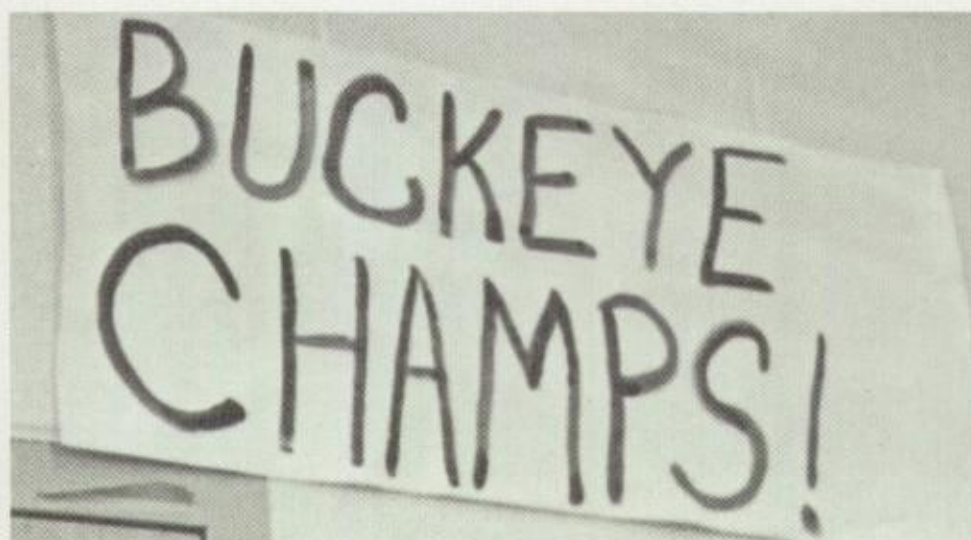 BUCKEYE
CHAMPS!